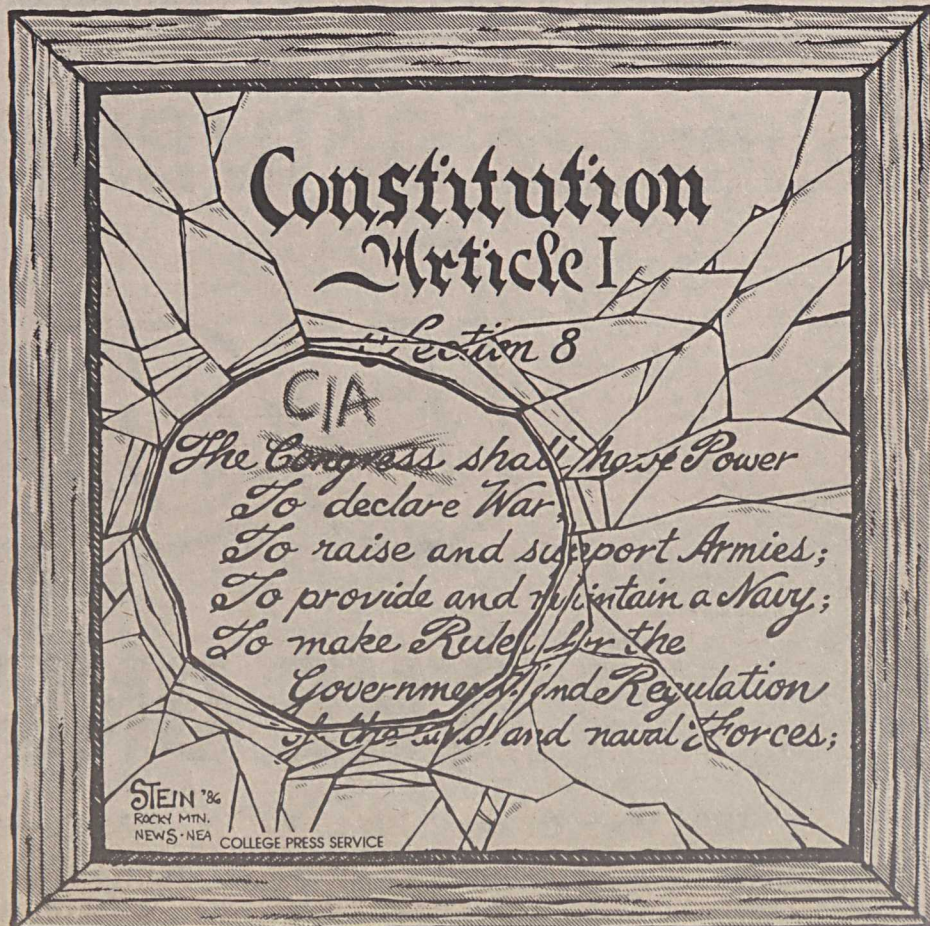 Constitution
Article I
Section 8
CIA
The Congress shall have Power
To declare War,
To raise and support Armies;
To provide and maintain a Navy;
To make Rules for the
Government and Regulation
of the land and naval Forces;
STEIN '86
ROCKY MTN.
NEWS·NEA
COLLEGE PRESS SERVICE